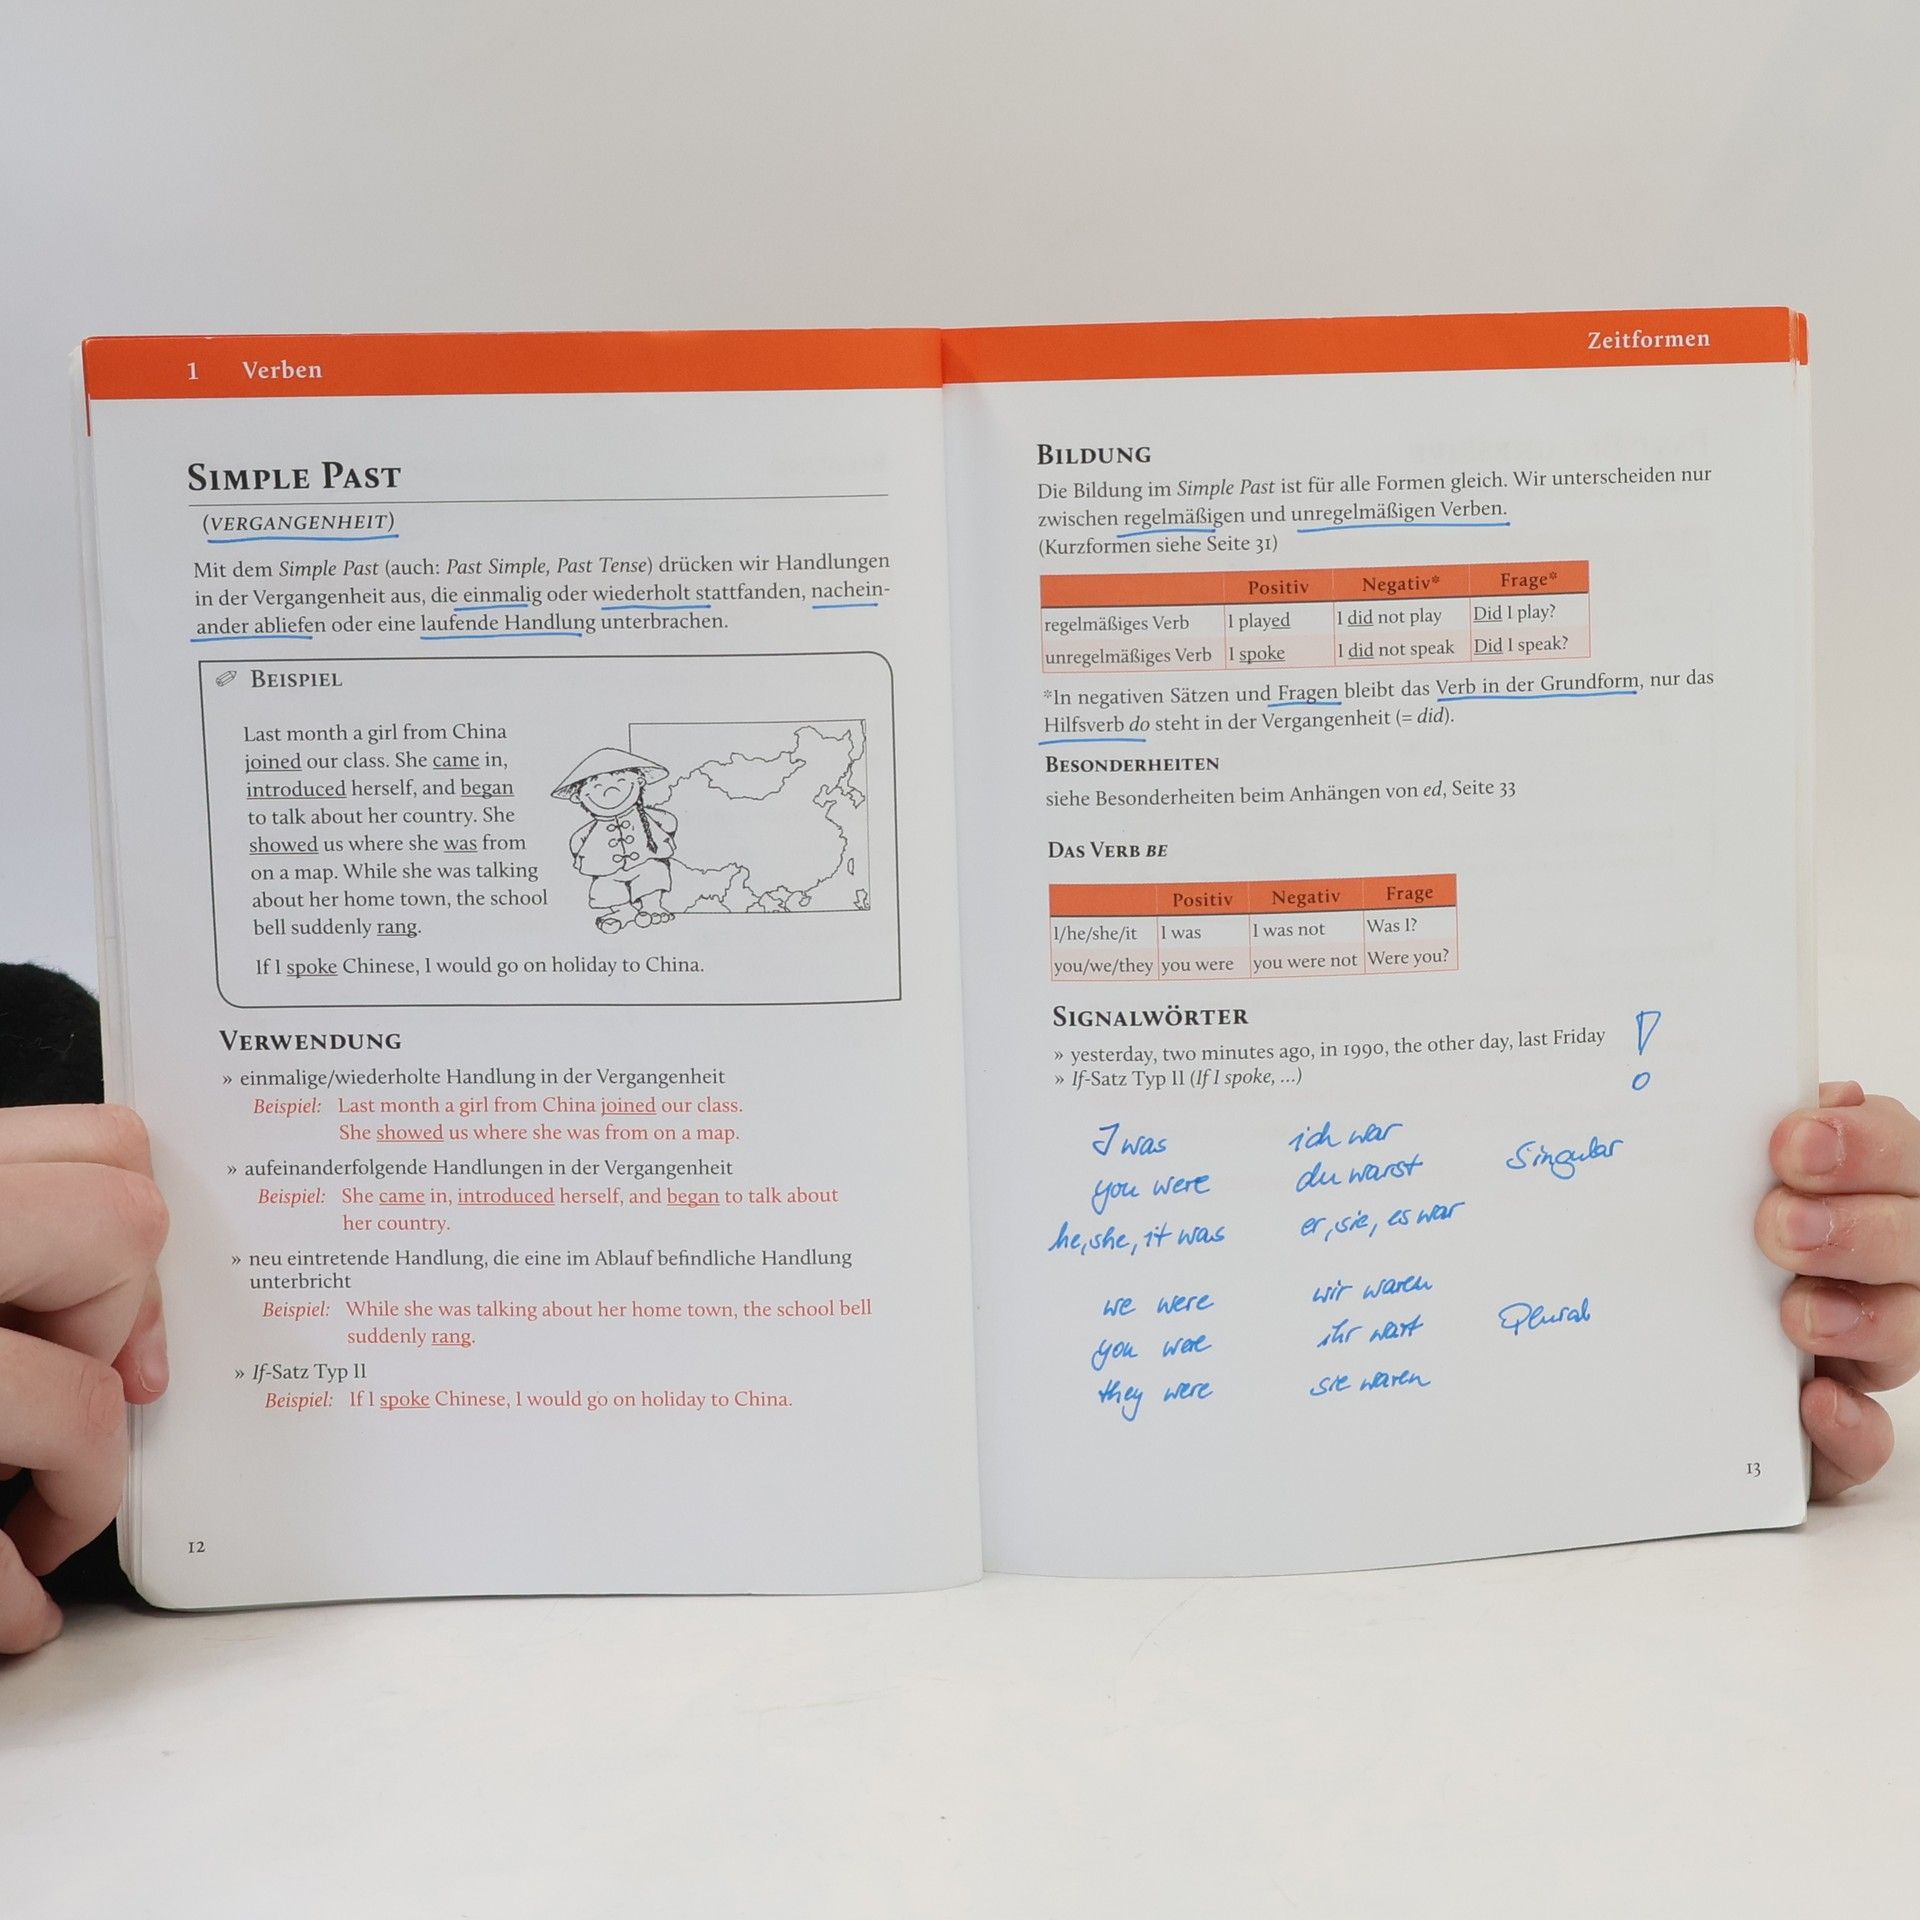 1 Verben
SIMPLE PAST
(VERGANGENHEIT)
Mit dem Simple Past (auch: Past Simple, Past Tense) drücken wir Handlungen
in der Vergangenheit aus, die einmalig oder wiederholt stattfanden, nachein-
ander abliefen oder eine laufende Handlung unterbrachen.
BEISPIEL
Last month a girl from China
joined our class. She came in,
introduced herself, and began
to talk about her country. She
showed us where she was from
on a map. While she was talking
about her home town, the school
bell suddenly rang.
If I spoke Chinese, I would go on holiday to China.
VERWENDUNG
» einmalige/wiederholte Handlung in der Vergangenheit
Beispiel: Last month a girl from China joined our class.
She showed us where she was from on a map.
» aufeinanderfolgende Handlungen in der Vergangenheit
Beispiel: She came in, introduced herself, and began to talk about
her country.
» neu eintretende Handlung, die eine im Ablauf befindliche Handlung
unterbricht
Beispiel: While she was talking about her home town, the school bell
suddenly rang.
» If-Satz Typ II
Beispiel: If I spoke Chinese, I would go on holiday to China.
12
Zeitformen
BILDUNG
Die Bildung im Simple Past ist für alle Formen gleich. Wir unterscheiden nur
zwischen regelmäßigen und unregelmäßigen Verben.
(Kurzformen siehe Seite 31)
Positiv Negativ* Frage*
regelmäßiges Verb I played I did not play Did I play?
unregelmäßiges Verb I spoke I did not speak Did I speak?
*In negativen Sätzen und Fragen bleibt das Verb in der Grundform, nur das
Hilfsverb do steht in der Vergangenheit (= did).
BESONDERHEITEN
siehe Besonderheiten beim Anhängen von ed, Seite 33
DAS VERB BE
Positiv Negativ Frage
I/he/she/it I was I was not Was I?
you/we/they you were you were not Were you?
SIGNALWÖRTER
» yesterday, two minutes ago, in 1990, the other day, last Friday !
» If-Satz Typ II (If I spoke, ...)
I was ich war
you were du warst Singular
he, she, it was er, sie, es war
we were wir waren
you were ihr wart Plural
they were sie waren
13